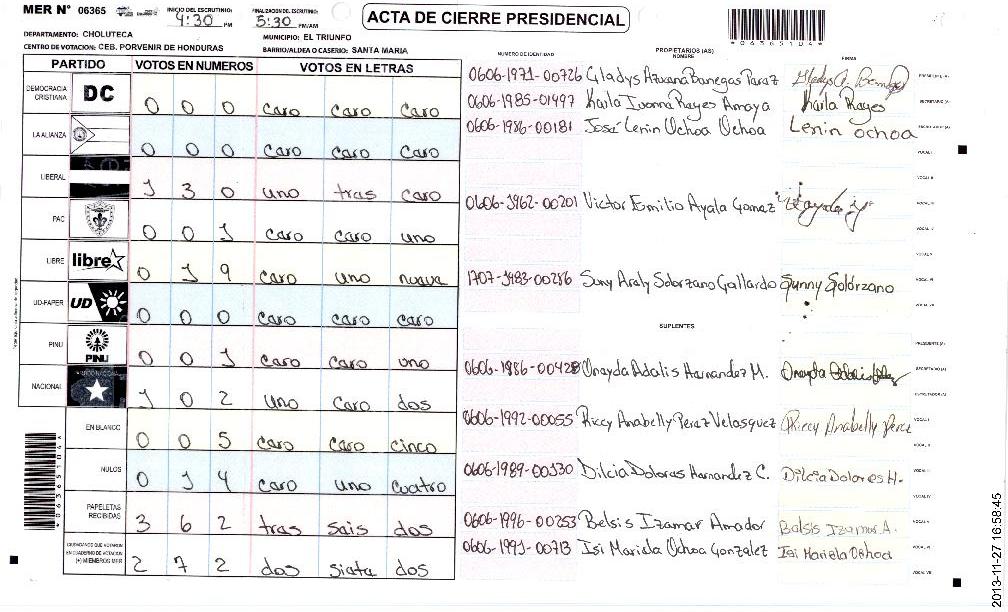 MER N° 06365
INICIO DEL ESCRUTINIO: 4:30 PM
FINALIZACION DEL ESCRUTINIO: 5:30 PM/AM
ACTA DE CIERRE PRESIDENCIAL
*06365104*
DEPARTAMENTO: CHOLUTECA
MUNICIPIO: EL TRIUNFO
CENTRO DE VOTACION: CEB. PORVENIR DE HONDURAS
BARRIO/ALDEA O CASERIO: SANTA MARIA
PARTIDO VOTOS EN NUMEROS VOTOS EN LETRAS
DEMOCRACIA CRISTIANA DC 0 0 0 caro caro caro
LA ALIANZA 0 0 0 caro caro caro
LIBERAL 1 3 0 uno tras caro
PAC 0 0 1 caro caro uno
LIBRE libre 0 1 9 caro uno nueva
UD-FAPER UD 0 0 0 caro caro caro
PINU PINU 0 0 1 caro caro uno
NACIONAL 1 0 2 uno caro dos
EN BLANCO 0 0 5 caro caro cinco
NULOS 0 1 4 caro uno cuatro
PAPELETAS RECIBIDAS 3 6 2 tras sais dos
CIUDADANOS QUE VOTARON EN CUADERNO DE VOTACION (+) MIEMBROS MER 2 7 2 dos siata dos
*06365104*
PROPIETARIOS (AS)
NUMERO DE IDENTIDAD NOMBRE FIRMA
0606-1971-00726 Gladys Azucana Banegas Paraz PRESIDENTE (A)
0606-1985-01497 Karla Ivonna Rayes Amaya Karla Rayes SECRETARIO (A)
0606-1986-00181 José Lenin Ochoa Ochoa Lenin ochoa ESCRUTADOR (A)
VOCAL I
VOCAL II
0606-1962-00201 Victor Emilio Ayala Gomaz VOCAL III
VOCAL IV
VOCAL V
1707-1983-00286 Suny Araly Solorzano Gallardo Sunny Solórzano VOCAL VI
VOCAL VII
SUPLENTES
PRESIDENTE (A)
0606-1986-00428 Onayda Adalis Harnandez M. SECRETARIO (A)
ESCRUTADOR (A)
0606-1992-00055 Riccy Anabelly Peraz Velasquez Riccy Anabelly Perez VOCAL I
VOCAL II
0606-1989-00130 Dilcia Doloras Harnandez C. Dilcia Dolores H. VOCAL III
VOCAL IV
0606-1996-00253 Belsis Izamar Amador Balsis Izamar A. VOCAL V
0606-1993-00713 Isi Mariela Ochoa Gonzalez Isi Mariela Ochoa VOCAL VI
VOCAL VII
2013-11-27 16:58:45